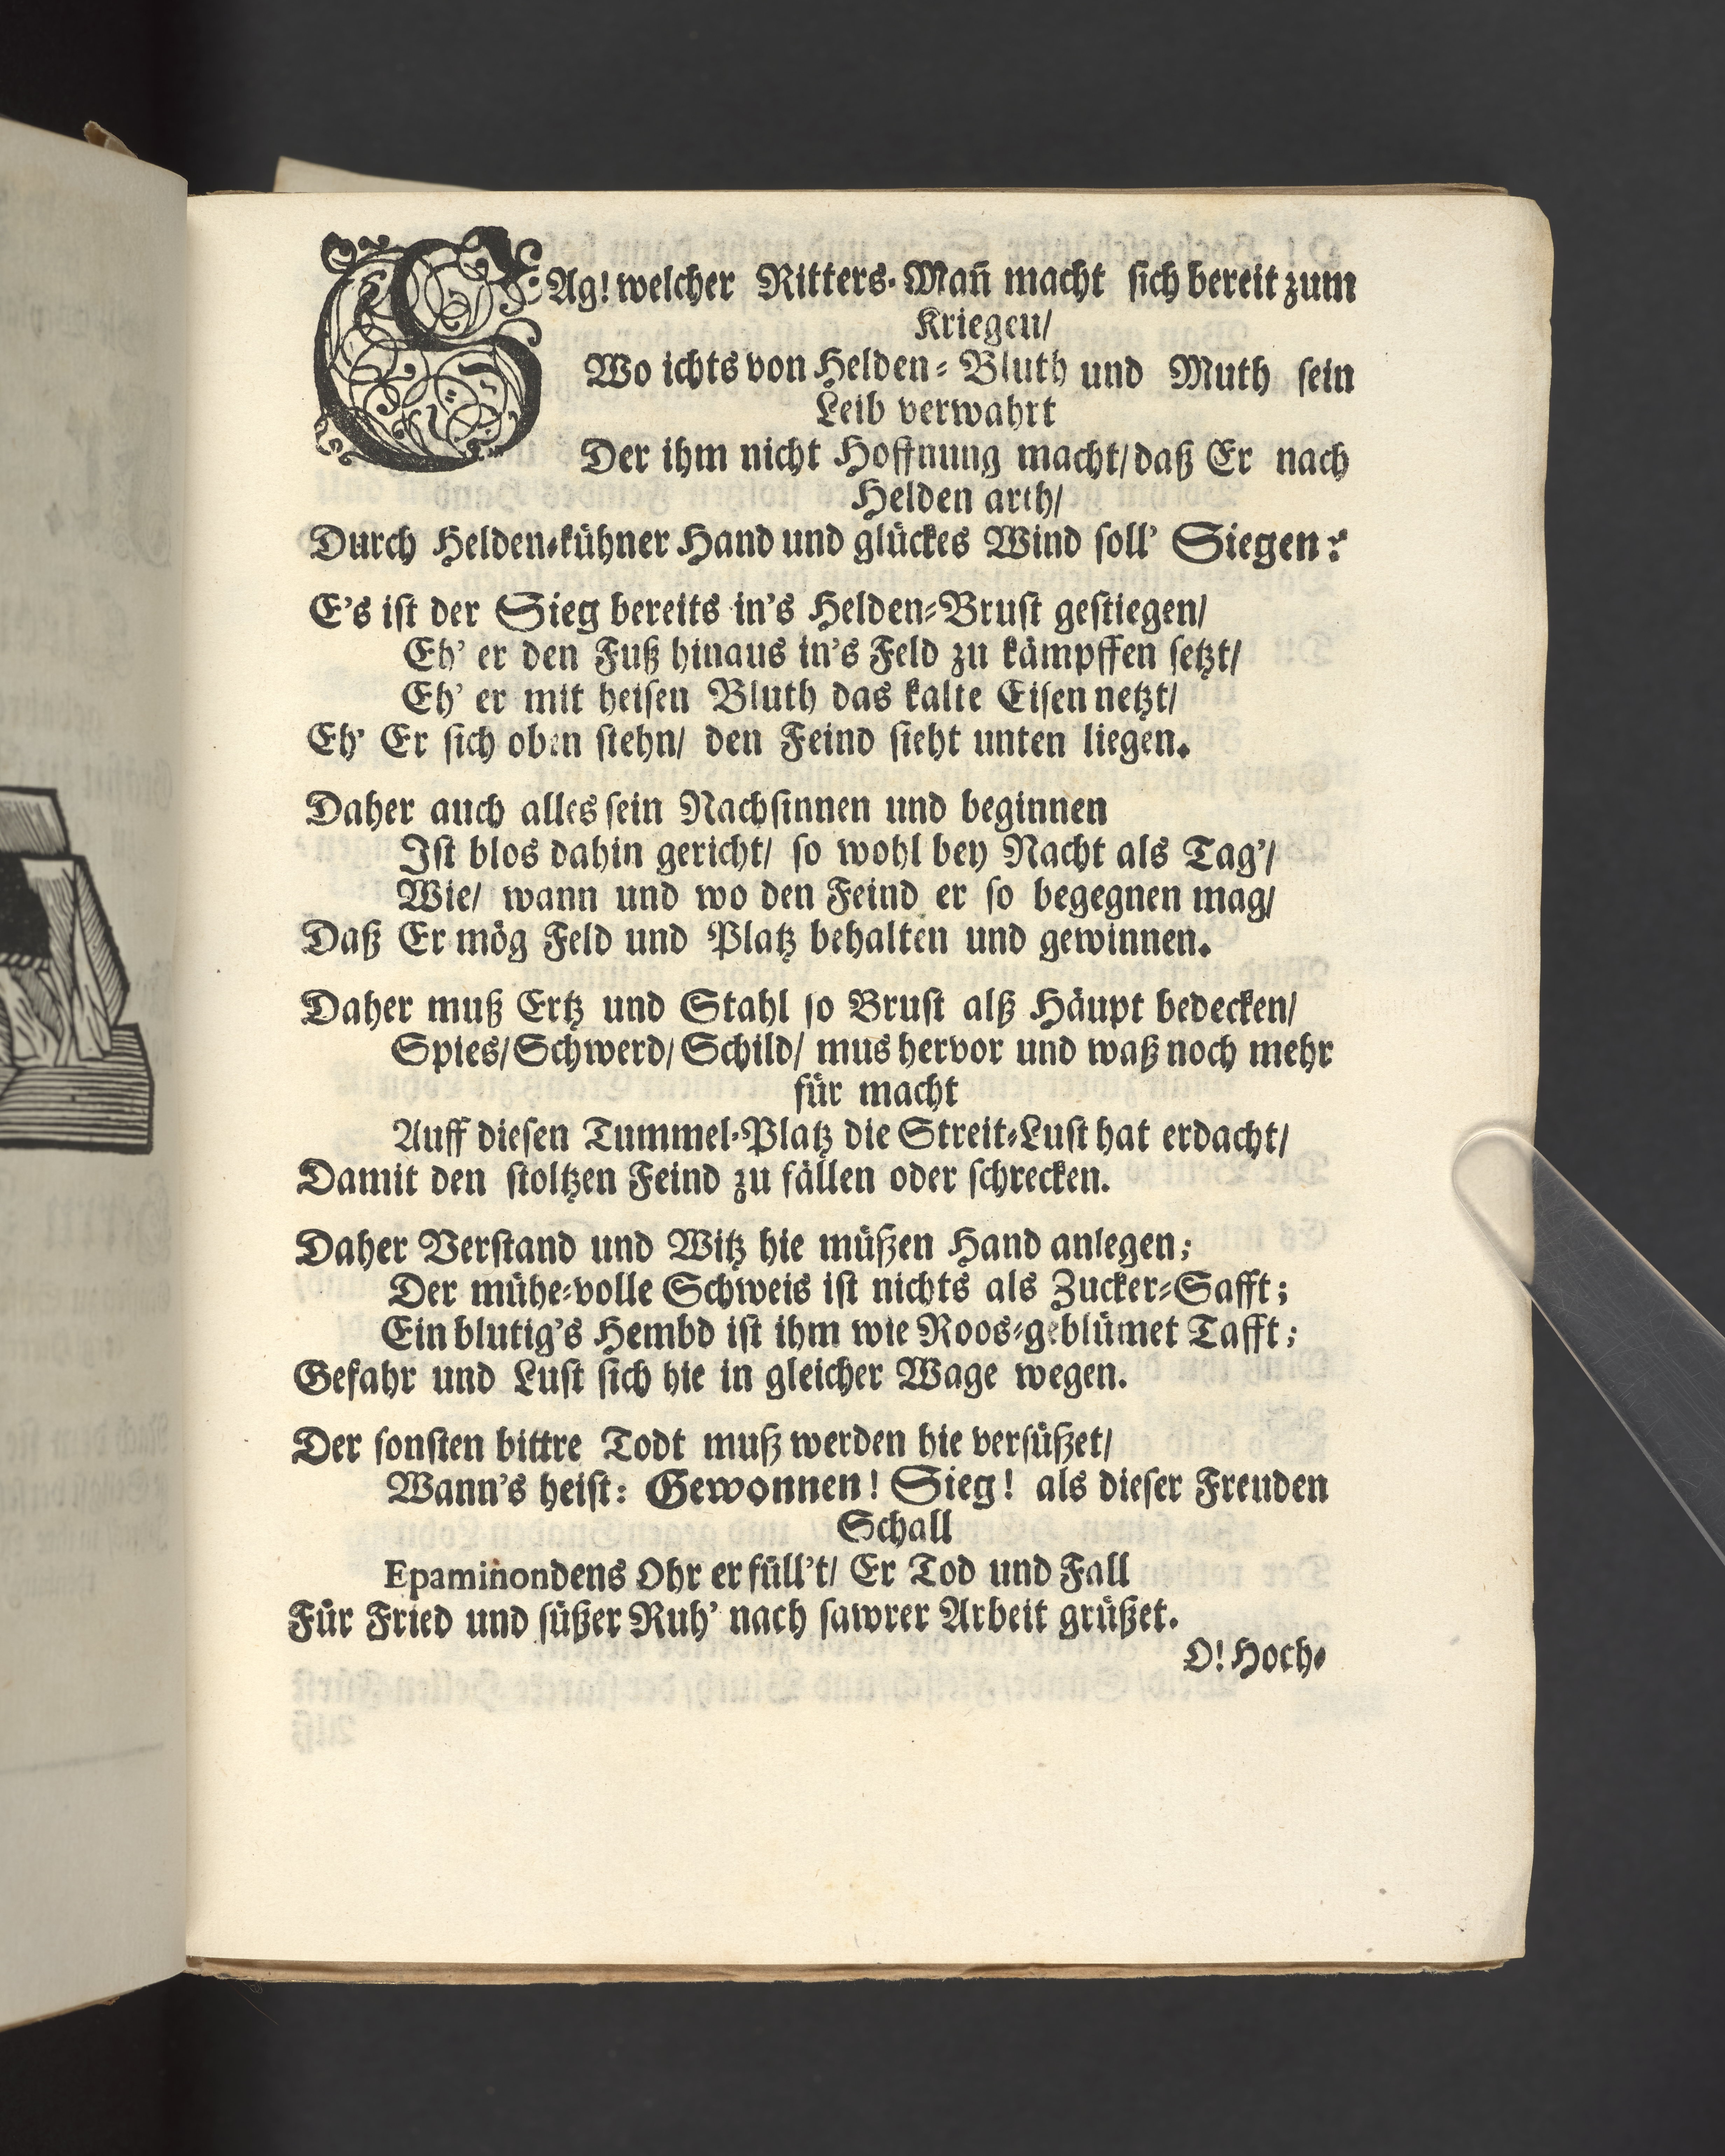 SAg! welcher Ritters-Mañ macht sich bereit zum
Kriegen/
Wo ichts von Helden-Bluth und Muth sein
Leib verwahrt
Der ihm nicht Hoffnung macht/ daß Er nach
Helden arth/
Durch Helden-kühner Hand und glückes Wind soll' Siegen?
E's ist der Sieg bereits in's Helden-Brust gestiegen/
Eh' er den Fuß hinaus in's Feld zu kämpffen setzt/
Eh' er mit heisen Bluth das kalte Eisen netzt/
Eh' Er sich oben stehn/ den Feind sieht unten liegen.
Daher auch alles sein Nachsinnen und beginnen
Ist blos dahin gericht/ so wohl bey Nacht als Tag'/
Wie/ wann und wo den Feind er so begegnen mag/
Daß Er mög Feld und Platz behalten und gewinnen.
Daher muß Ertz und Stahl so Brust alß Häupt bedecken/
Spies/ Schwerd/ Schild/ mus hervor und waß noch mehr
für macht
Auff diesen Tummel-Platz die Streit-Lust hat erdacht/
Damit den stoltzen Feind zu fällen oder schrecken.
Daher Verstand und Witz hie müßen Hand anlegen;
Der mühe-volle Schweis ist nichts als Zucker-Safft;
Ein blutig's Hembd ist ihm wie Roos-geblümet Tafft;
Gefahr und Lust sich hie in gleicher Wage wegen.
Der sonsten bittre Todt muß werden hie versüßet/
Wann's heist: Gewonnen! Sieg! als dieser Freuden
Schall
Epamiñondens Ohr erfüll't/ Er Tod und Fall
Für Fried und süßer Ruh' nach sawrer Arbeit grüßet.
O! Hoch-